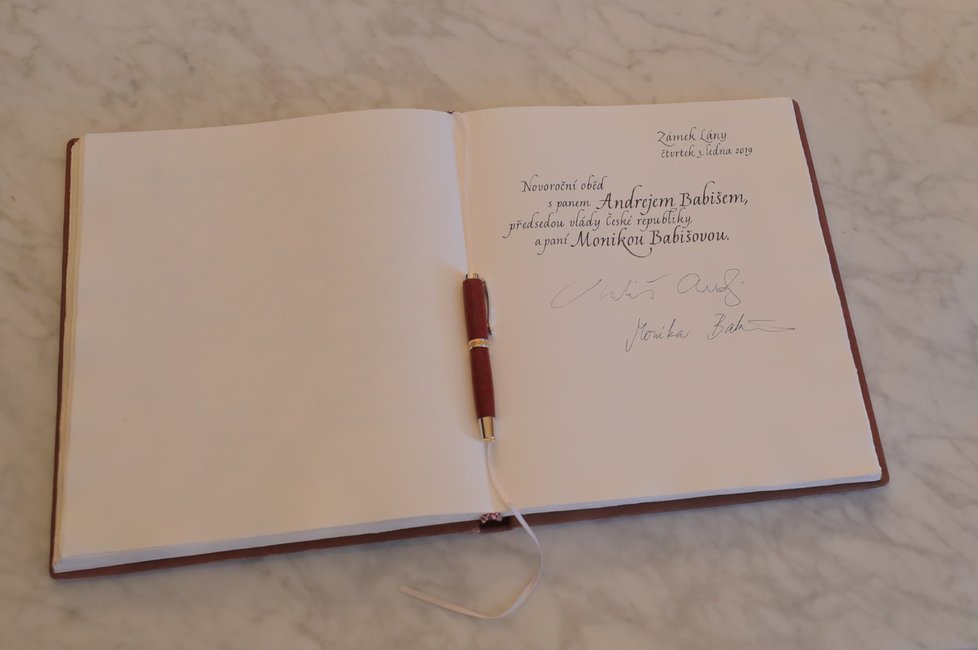 Zámek Lány
čtvrtek 3. ledna 2019
Novoroční oběd
s panem Andrejem Babišem,
předsedou vlády České republiky
a paní Monikou Babišovou.
Monika